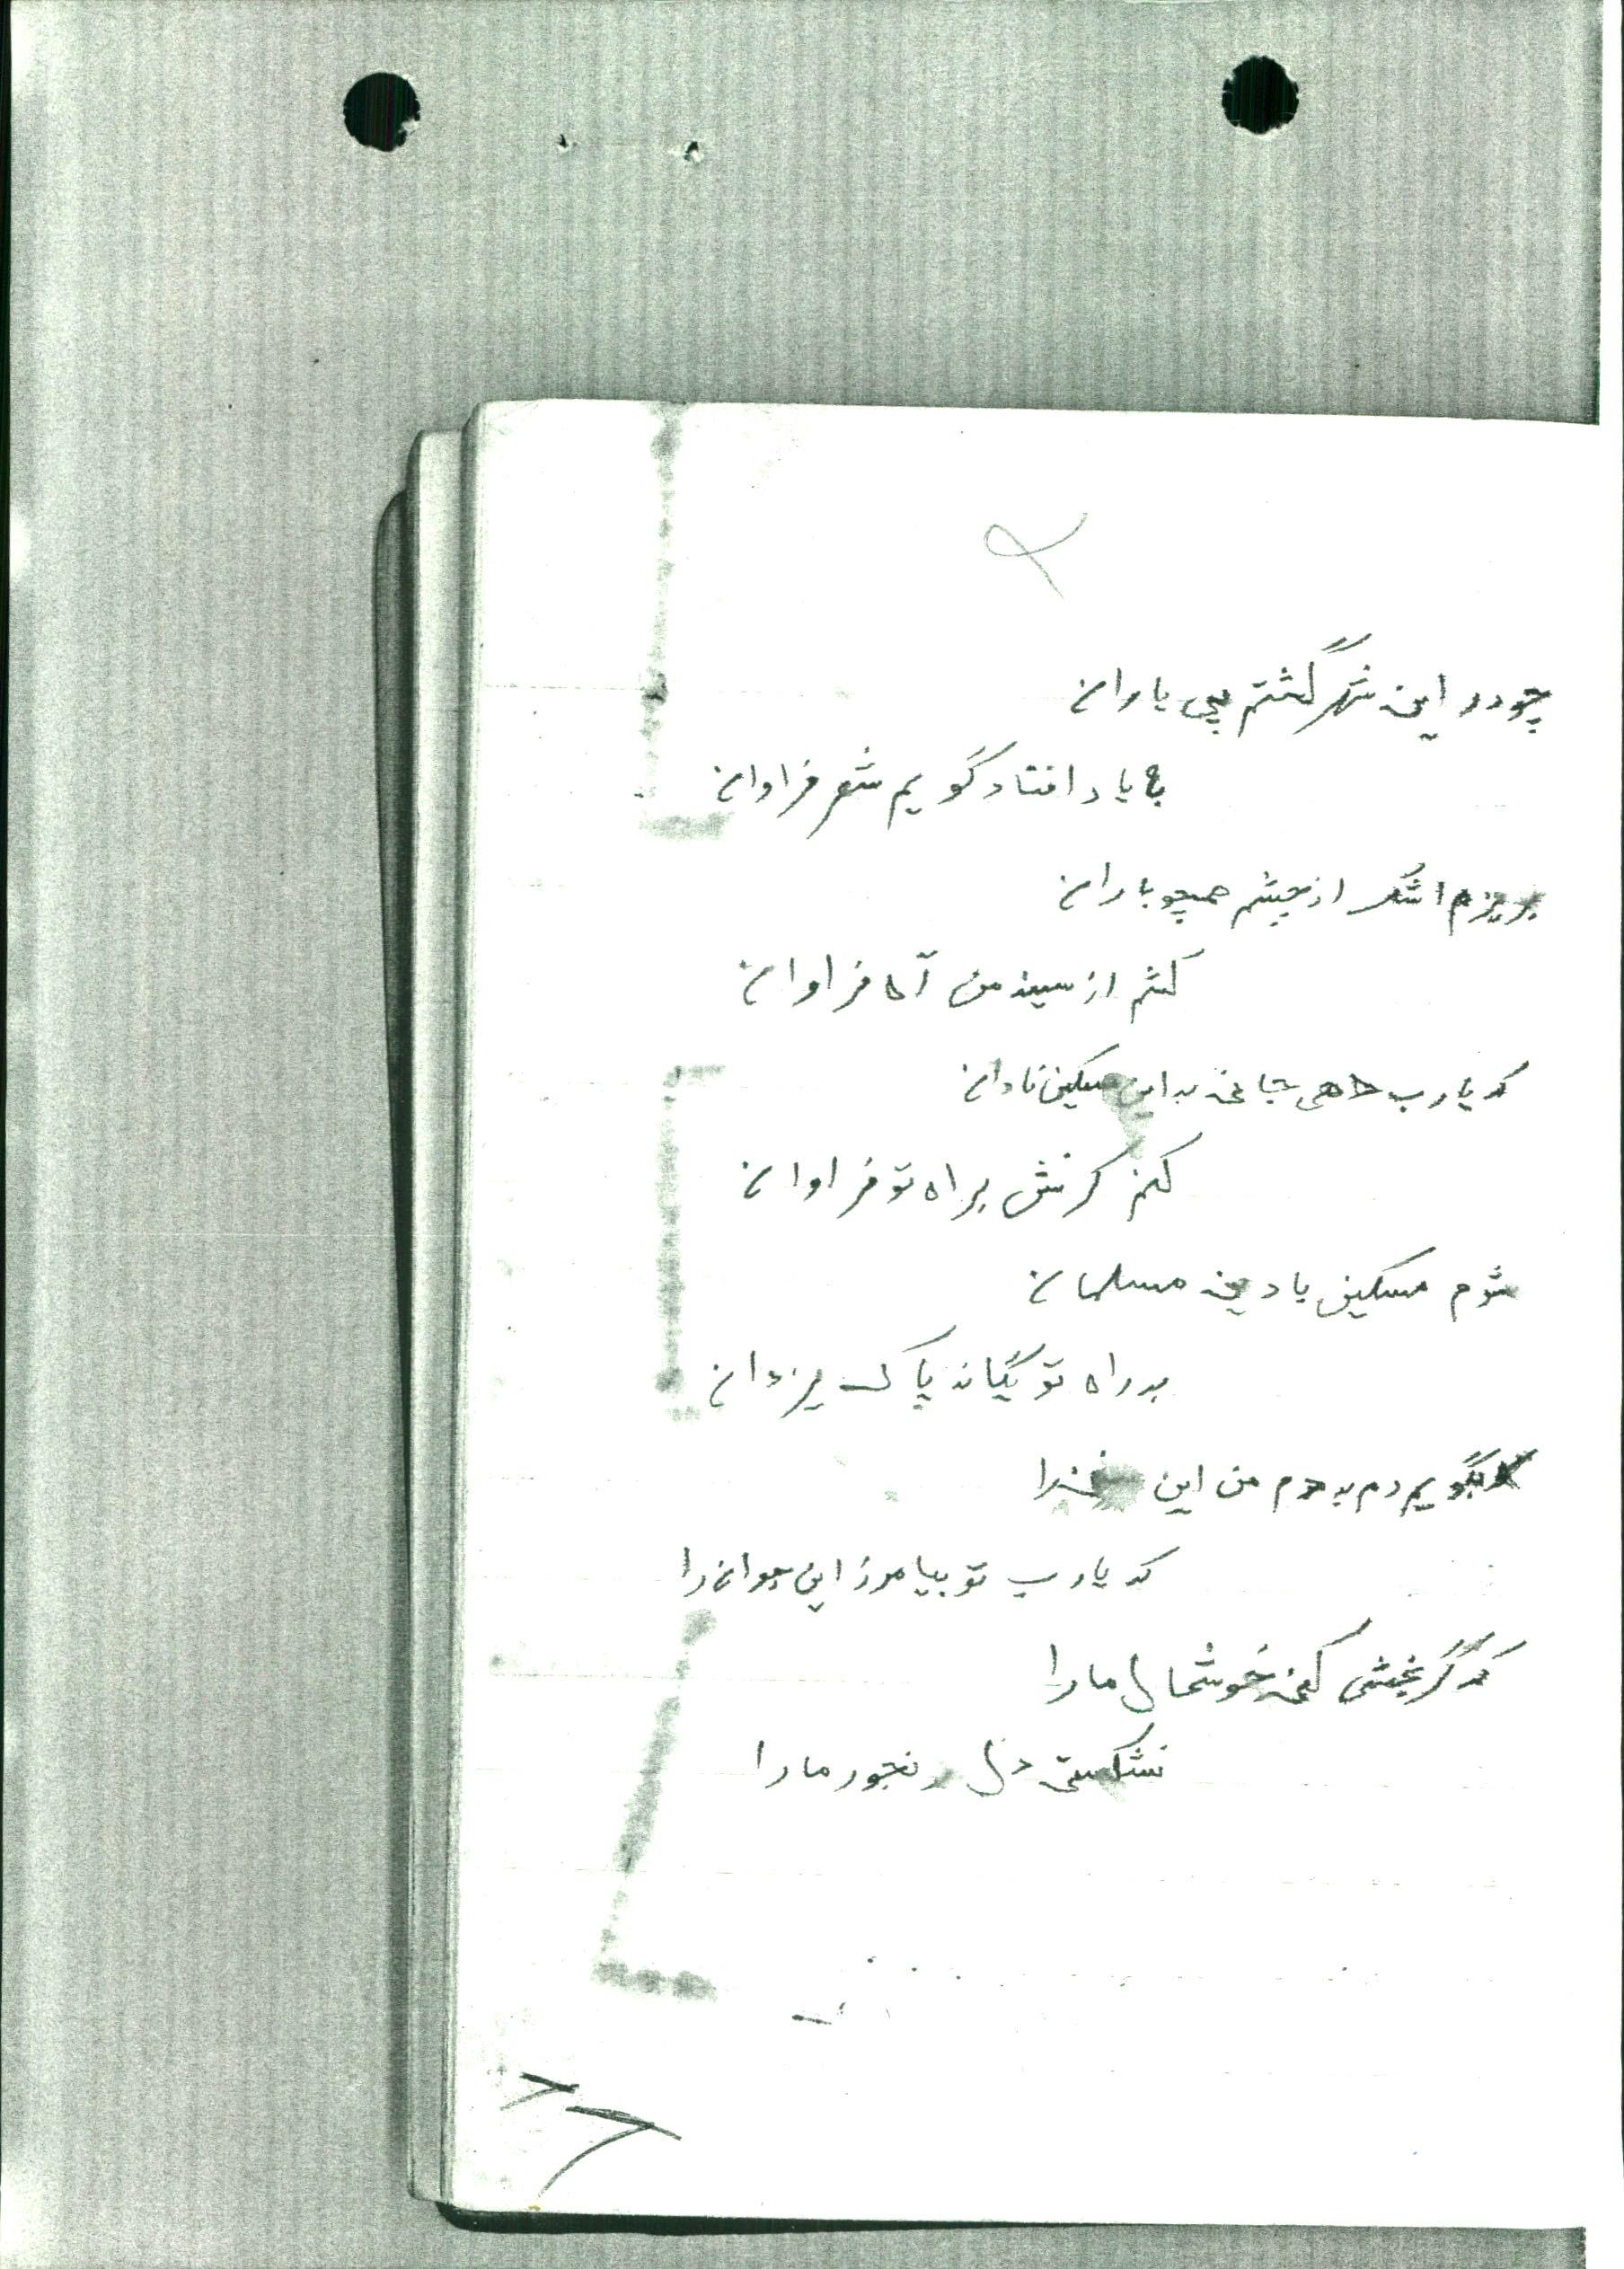 چو در این شهر گشتم پی یاران
یاد افتاد گویم شعر فراوان
بریزم اشک از چشم همچو باران
کشم از سینه من آه فراوان
که یا رب جاهی به این مسکین نادان
کنم کرنش براه تو فراوان
شوم مسکین با دین مسلمان
به راه تو یگانه پاک یزدان
بگویم دم به دم من این را
که یا رب تو بیامرز این جوان را
که گر بخشی کنی خوشحال ما را
نشکستی دل رنجور ما را